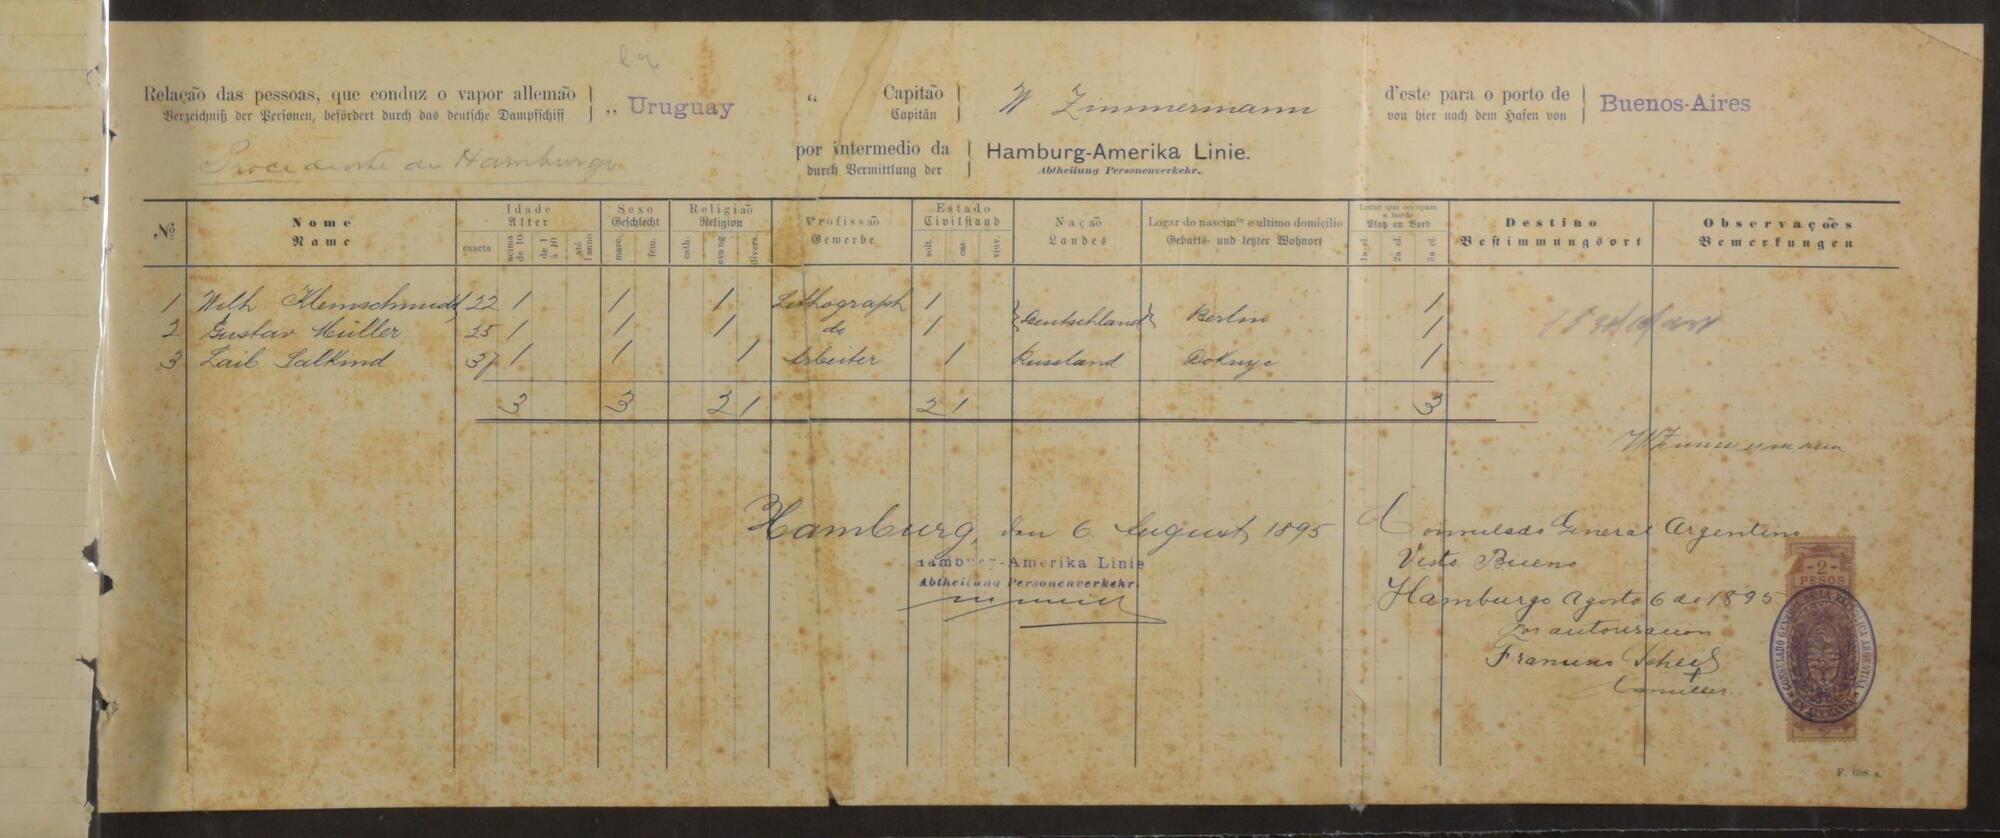 Relação das pessoas, que conduz o vapor allemão
Verzeichniß der Personen, befördert durch das deutsche Dampfschiff
„ Uruguay “
Capitão
Capitän
W. Zimmermann
d'este para o porto de
von hier nach dem Hafen von
Buenos-Aires
Procedente de Hamburgo
por intermedio da
durch Vermittlung der
Hamburg-Amerika Linie.
Abtheilung Personenverkehr.
No
Nome
Name
Idade
Alter
exacta
acima de 10
de 1 à 10
até 1 anno
Sexo
Geschlecht
masc.
fem.
Religião
Religion
cath.
evang.
divers.
Profissão
Gewerbe
Estado
Civilstand
solt.
cas.
viuv.
Nação
Landes
Logar do nascimto e ultimo domicilio
Geburts- und letzter Wohnort
Logar que occupam a bordo
Platz an Bord
1a cl.
2a cl.
3a cl.
Destino
Bestimmungsort
Observações
Bemerkungen
1 Wilh Kleinschmidt 22 1 1 1 Lithograph 1 Deutschland Berlin 1
2 Gustav Müller 25 1 1 1 do 1 1
3 Laib Salkind 37 1 1 1 Arbeiter 1 Russland 1
3 3 2 1 2 1 3
WZimmermann
Hamburg, den 6. August 1895
Hamburg-Amerika Linie
Abtheilung Personenverkehr.
Consulado General Argentino
Visto Bueno
Hamburgo Agosto 6 de 1895
Por autorizacion
2
PESOS
CONSULADO GENERAL DE LA REPUBLICA ARGENTINA
EN ALEMANIA
F. 698 a.